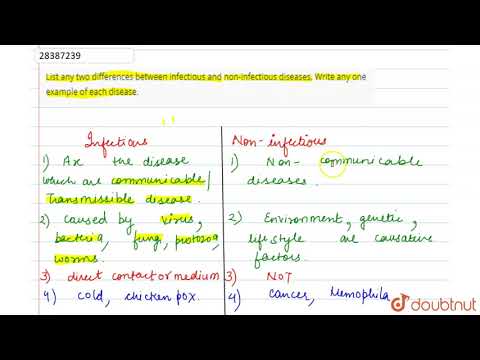 28387239
List any two differences between infectious and non-infectious diseases. Write any one
example of each disease.
Infectious
1) Are the disease
which are communicable/
Transmissible disease.
2) caused by virus,
bacteria, fungi, protozoa,
worms.
3) direct contact or medium
4) cold, chicken pox.
Non-infectious
1) Non-communicable
diseases.
2) Environment, genetic,
lifestyle are causative
factors.
3) NOT
4) Cancer, Hemophila
doubtnut